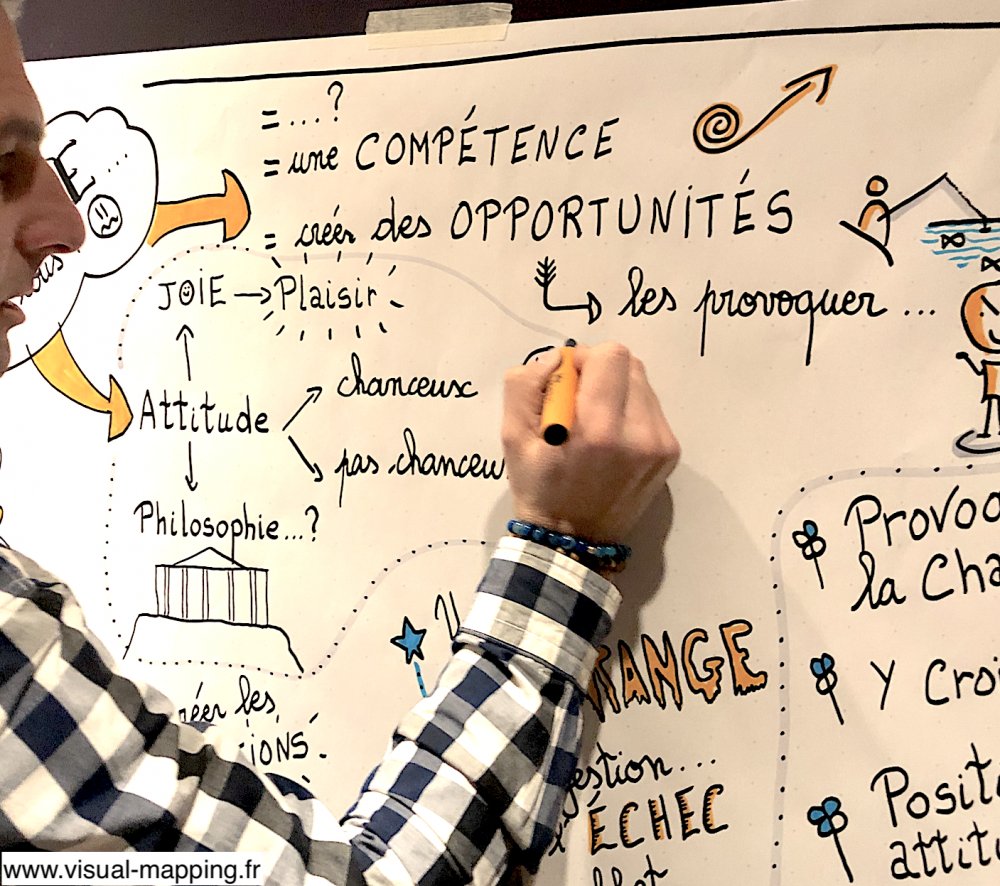 = ...?
= une COMPÉTENCE
= créer des OPPORTUNITÉS
les provoquer ...
JOIE → Plaisir
Attitude
chanceux
pas chanceu
Philosophie...?
réer les
IONS
ANGE
gestion...
ÉCHEC
Provoq
la Cha
Y Croi
Posit
attit
www.visual-mapping.fr